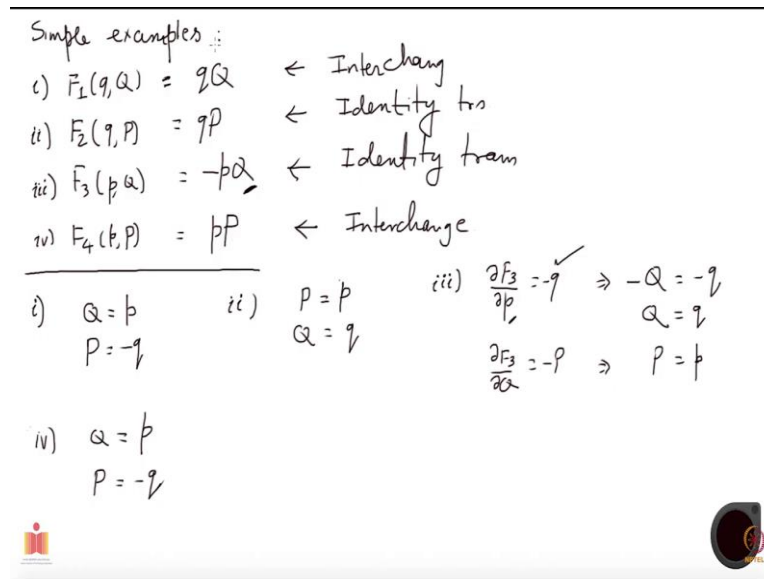 Simple examples :
i) F₁(q,Q) = qQ ← Interchang
ii) F₂(q,P) = qP ← Identity trs
iii) F₃(p,Q) = -pQ ← Identity tram
iv) F₄(p,P) = pP ← Interchange
i) Q = p
P = -q
ii) P = p
Q = q
iii) ∂F₃/∂p = -q ✓ ⇒ -Q = -q
Q = q
∂F₃/∂Q = -P ⇒ P = p
iv) Q = p
P = -q